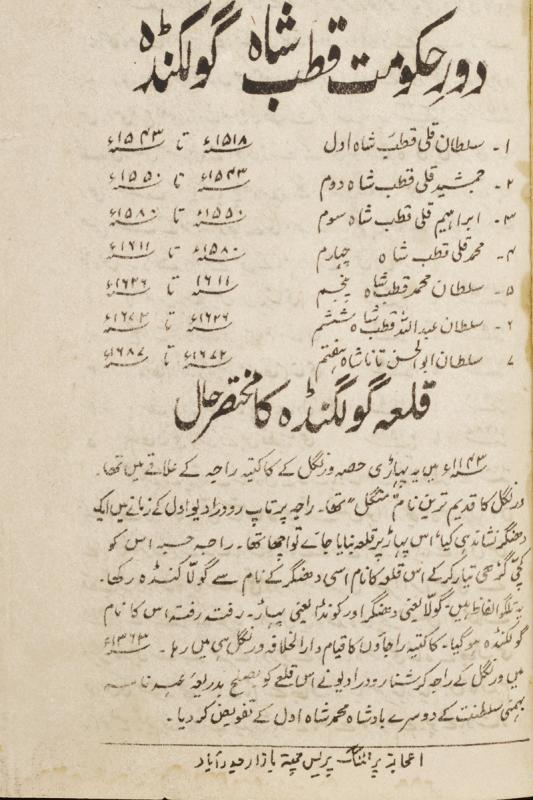 دورِ حکومت قطب شاہ گولکنڈہ
۱- سلطان قلی قطب شاہ اول ۱۵۱۸ء تا ۱۵۴۳ء
۲- جمشید قلی قطب شاہ دوم ۱۵۴۳ء تا ۱۵۵۰ء
۳- ابراہیم قلی قطب شاہ سوم ۱۵۵۰ء تا ۱۵۸۰ء
۴- محمد قلی قطب شاہ چہارم ۱۵۸۰ء تا ۱۶۱۱ء
۵- سلطان محمد قطب شاہ پنجم ۱۶۱۱ تا ۱۶۲۶ء
۶- سلطان عبداللہ قطب شاہ ششم ۱۶۲۶ء تا ۱۶۷۲ء
۷ سلطان ابوالحسن تانا شاہ ہفتم ۱۶۷۲ء تا ۱۶۸۷ء
قلعہ گولگنڈہ کا مختصر حال
۱۱۴۳ء میں یہ پہاڑی حصہ ورنگل کے کاکتیہ راجہ کے علاقے میں تھا۔
ورنگل کا قدیم ترین نام "منگل" تھا۔ راجہ پرتاپ رودرا دیو اول کے زمانے میں ایک
دھنگر نشاندہی کیا، اس پہاڑ پر قلعہ بنایا جائے تو اچھا تھا۔ راجہ اس کو
کچی گڑھی تیار کر کے اس قلعہ کا نام اسی دھنگر کے نام سے گولا کنڈہ رکھا۔
یہ تلگو الفاظ ہیں۔ گولّا یعنی دھنگر اور کونڈا یعنی پہاڑ۔ رفتہ رفتہ اس کا نام
گولکنڈہ ہو گیا۔ کاکتیہ راجاؤں کا قیام دارالخلافہ ورنگل ہی میں رہا۔ ۱۳۶۳ء
میں ورنگل کے راجہ کرشنا رودرا دیو نے اس قلعے کو بصلح بذریعۂ عہد نامہ
بہمنی سلطنت کے دوسرے بادشاہ محمد شاہ اول کے تفویض کر دیا۔
اعجاز پرنٹنگ پریس چھتہ بازار حیدرآباد